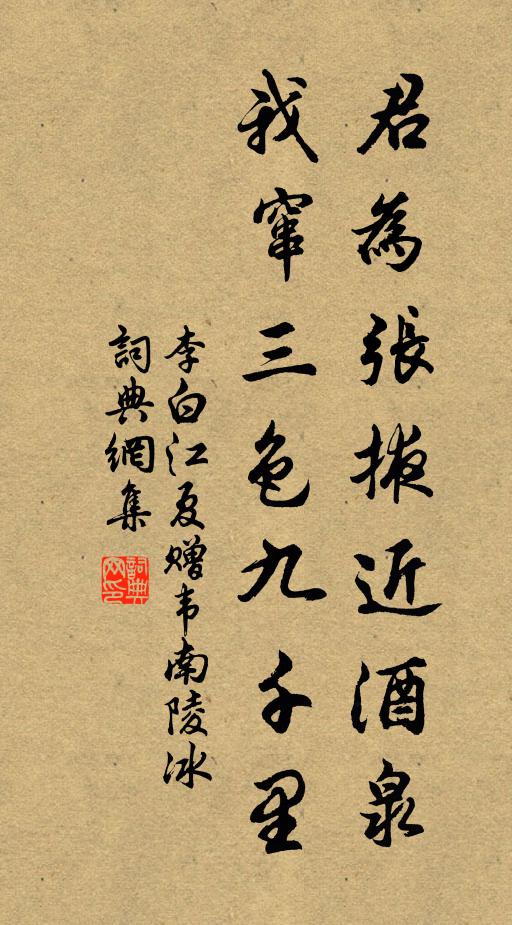 君為張掖近酒泉
我竄三色九千里
李白江夏赠韦南陵冰
詞典網集
詞典网印